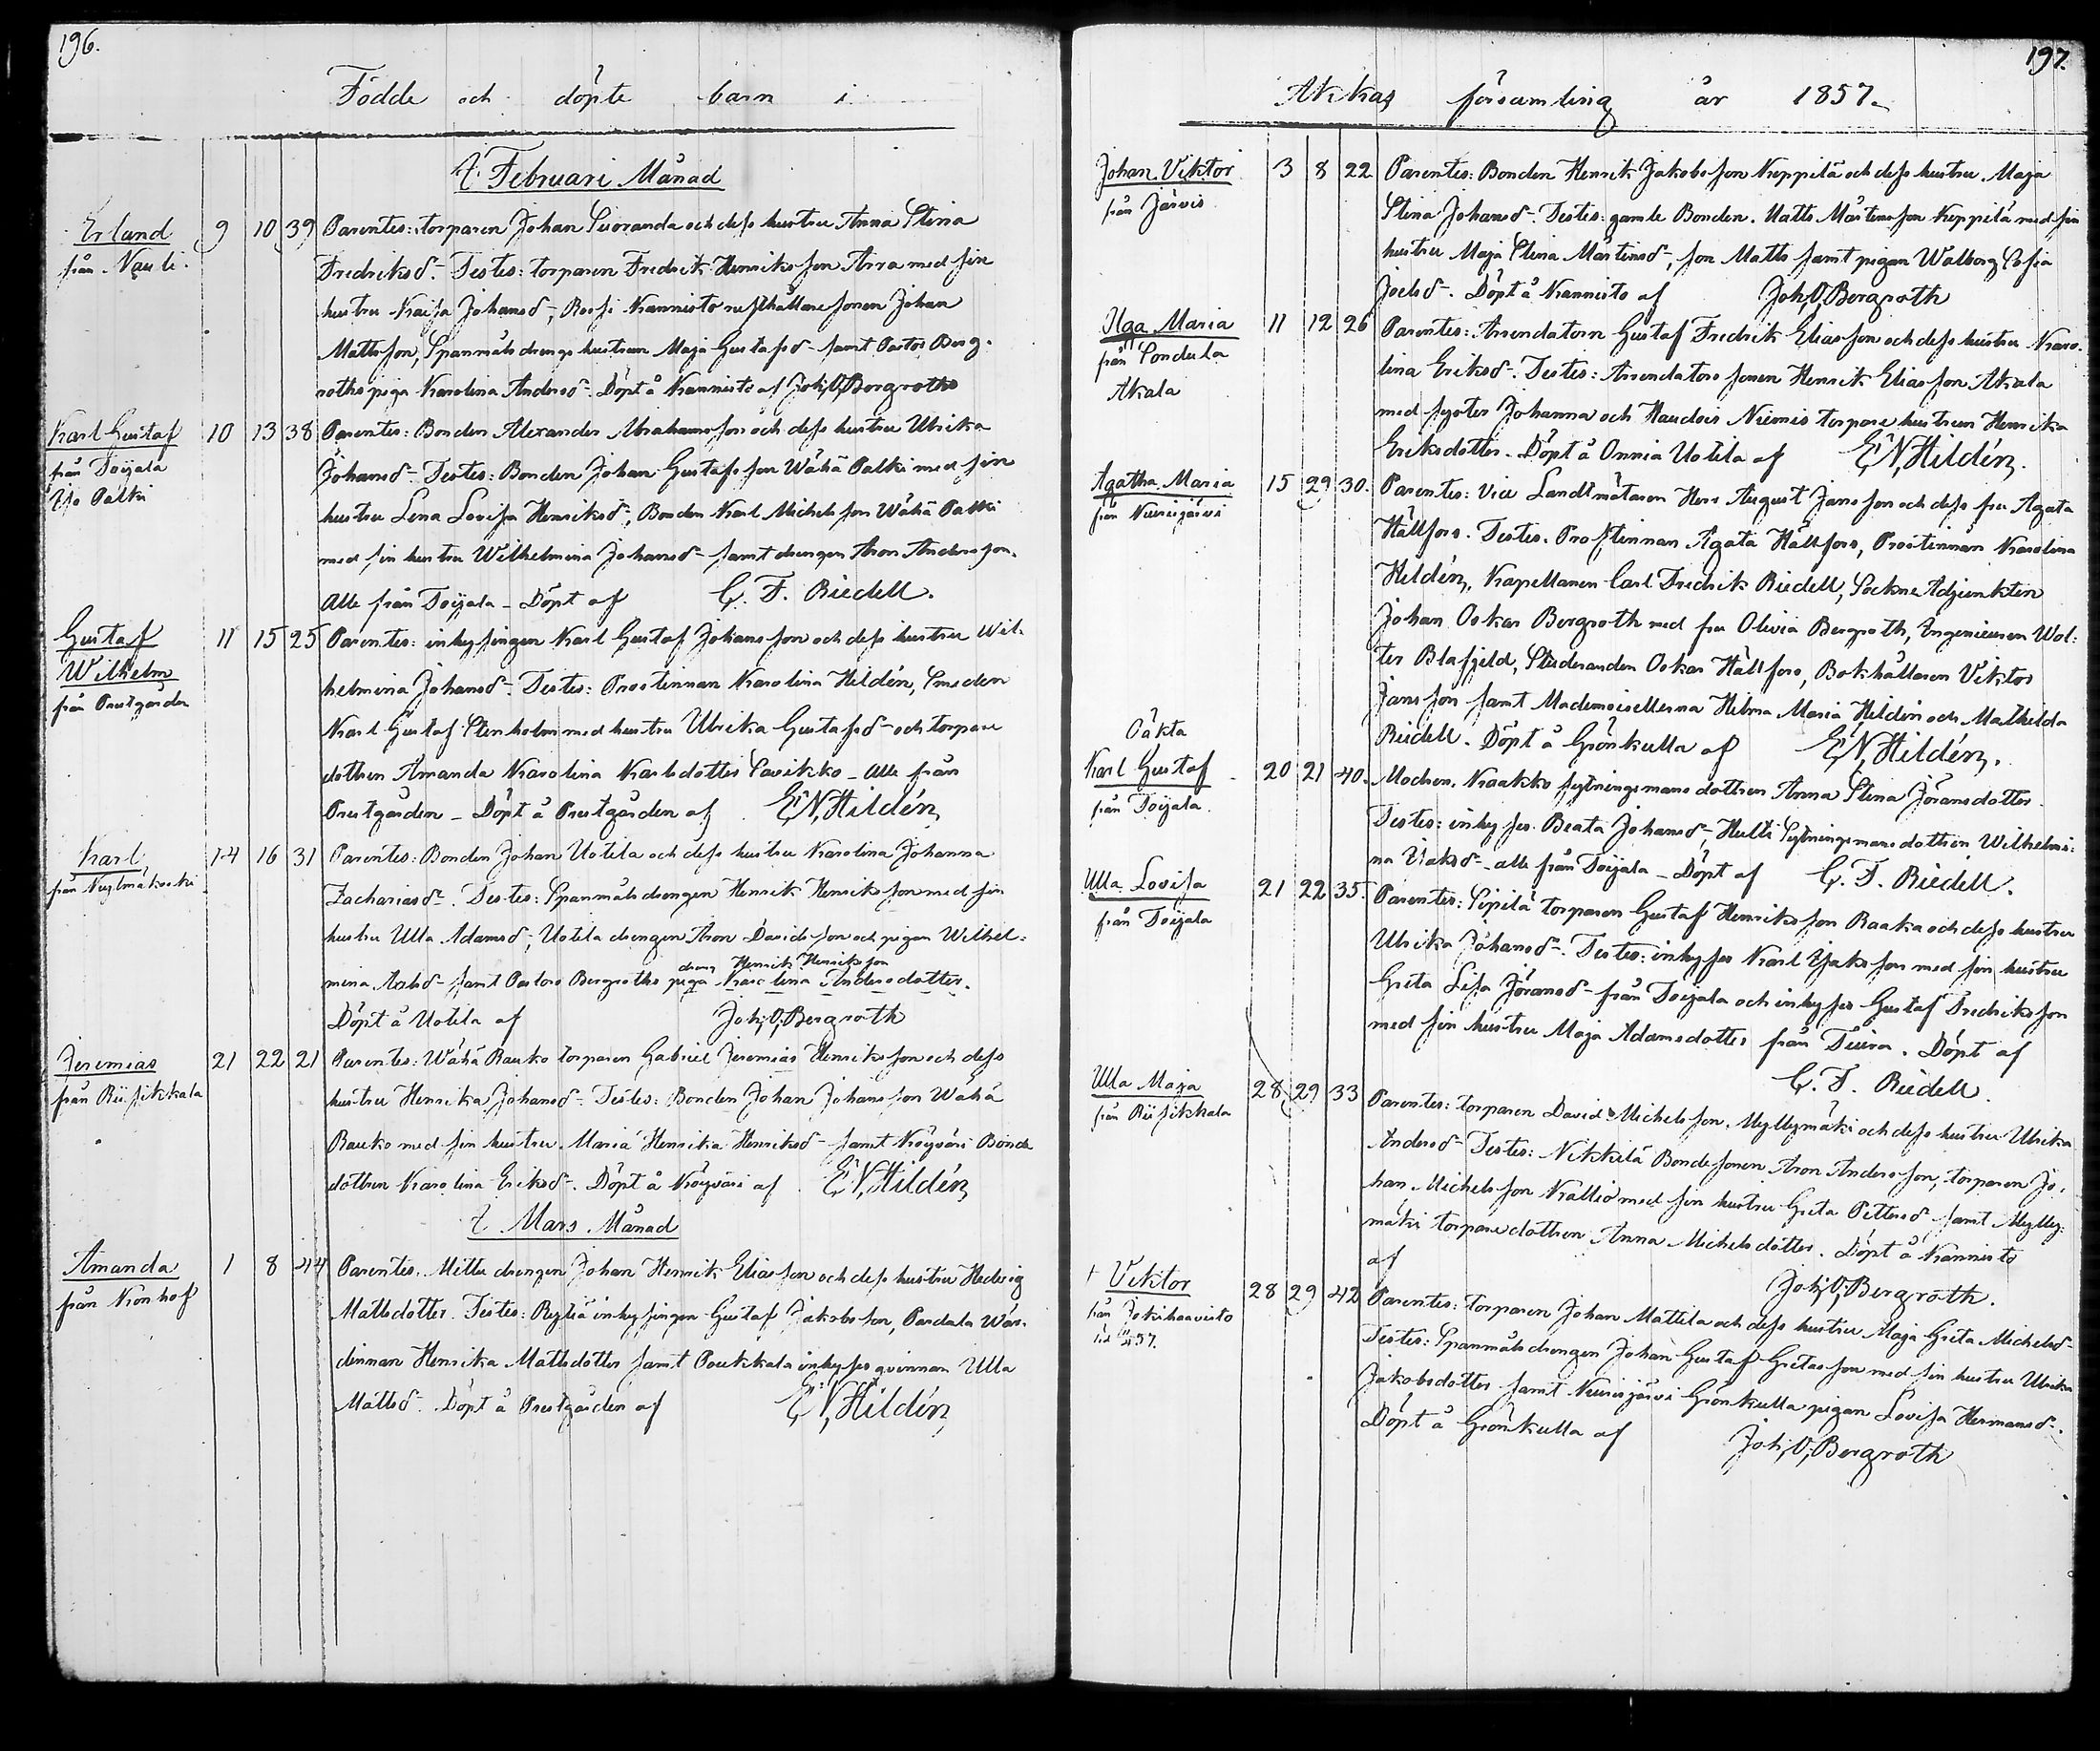 196.
Födde och döpte barn i
i Februari Månad
Erland 9 10 39 Parentes: torparen Johan Suoranda och dess hustru Anna Stina
från Nauli. Fredriksd:r Testes: torparen Fredrik Henriksson Arra med sin
hustru Kaisa Johansd:r, Rossi Kannisto rusthållaresonen Johan
Mattsson, Spannmålsdrengs hustrun Maja Gustafsd:r samt Pastor Berg-
roths piga Karolina Andersd:r. Döpt å Kannisto af Joh. O. Bergroth
Karl Gustaf 10 13 38 Parentes: Bonden Alexander Abrahamsson och dess hustru Ulrika
från Toijala Johansd:r Testes: Bonden Johan Gustafsson Wähä Palki med sin
Palki hustru Lena Lovisa Henriksd:r, Bonden Karl Michelsson Wähä Palki
med sin hustru Wilhelmina Johansd:r samt drengen Aron Andersson.
Alle från Toijala – Döpt af C. F. Riedell.
Gustaf 11 15 25 Parentes: inhysingen Karl Gustaf Johansson och dess hustru Wil-
Wilhelm helmina Johansd:r. Testes: Prostinnan Karolina Hildén, Smeden
från Prestgården Karl Gustaf Stenholm med hustru Ulrika Gustafsd:r och torpare
dottren Amanda Karolina Karlsdotter Savikko – alle från
Prestgården – Döpt å Prestgården af E. N. Hildén
Karl 14 16 31 Parentes: Bonden Johan Uotila och dess hustru Karolina Johanna
från Kylmäkoski Zachariasd:r. Testes: Spannmålsdrengen Henrik Henriksson med sin
hustru Ulla Adamsd:r, Uotila drengen Aron Davidsson och pigan Wilhel-
dreng Henrik Henriksson
mina samt Pastors Bergroths piga Karolina Andersdotter.
Döpt å Uotila af Joh. O. Bergroth
Jeremias 21 22 21 Parentes: Wähä Rauko torparen Gabriel Jeremias Henriksson och dess
från Riisikkala hustru Henrika Johansd:r. Testes: Bonden Johan Johansson Wähä
Rauko med sin hustru Maria Henrika Henriksd:r samt Nöyväri Bonde
dottren Karolina Eriksd:r. Döpt å Nöyväri af E. N. Hildén
i Mars Månad
Amanda 1 8 44 Parentes. Mittu drengen Johan Henrik Eliasson och dess hustru Hedvig
från Kronhof Mattsdotter. Testes: inhysingen Gustaf Jakobsson, Pardala Wär-
dinnan Henrika Mattsdotter samt Poukkala inhyses qvinnan Ulla
Mattsd:r. Döpt å Prestgården af E. N. Hildén
197.
Akkas församling år 1857.
Johan Viktor 3 8 22 Parentes: Bonden Henrik Jakobsson Keppilä och dess hustru Maja
från Järvis Stina Johansd:r. Testes: gamle Bonden Matts Mårtensson Keppilä med sin
hustru Maja Stina Mårtensd:r, son Matts samt pigan Walborg Sofia
Joelsd:r. Döpt å Kannisto af Joh. O. Bergroth
Olga Maria 11 12 26 Parentes: Arrendatorn Gustaf Fredrik Eliasson och dess hustru Karo-
från Sondula lina Eriksd:r. Testes: Arrendators sonen Henrik Eliasson Akala
Akala med syster Johanna och Haudois Niemis torpare hustrun Henrika
Eriksdotter. Döpt å Onnia Uotila af E. N. Hildén.
Agatha Maria 15 29 30. Parentes: Vice Landtmätaren Herr August Jansson och dess fru Agata
från Kurisjärvi Hällfors. Testes. Prostinnan Agata Hällfors, Prostinnan Karolina
Heldén, Kapellanen Carl Fredrik Riedell, Sockne Adjunkten
Johan Oskar Bergroth med fru Olivia Bergroth, Ingenieuren Wol-
ter Blafjeld, Studeranden Oskar Hällfors, Bokhållaren Viktor
Jansson samt Mademoisellerna Hilma Maria Hildén och Mathilda
Riedell. Döpt å Grönkulla af E. N. Hildén.
Oäkta
Karl Gustaf 20 21 40. Modren. Kraakko sytningsmans dottren Anna Stina Jöransdotter
från Toijala. Testes: inhyses Beata Johansd:r, Hulli Sytningsmans dottren Wilhelmi-
na Isaksd:r – alle från Toijala – Döpt af C. F. Riedell.
Ulla Lovisa 21 22 35. Parentes: Sipilä torparen Gustaf Henriksson Raaka och dess hustru
från Toijala Ulrika Johansd:r. Testes: inhyses Karl Isaksson med sin hustru
Greta Lisa Jöransd:r från Toijala och inhyses Gustaf Fredriksson
med sin hustru Maja Adamsdotter från Tiura. Döpt af
C. F. Riedell.
Ulla Maja 28 29 33 Parentes: torparen David Michelsson Myllymäki och dess hustru Ulrika
från Riisikkala Andersd:r Testes: Nikkilä Bondesonen Aron Andersson, torparen Jo-
han Michelsson Kallio med sin hustru Greta Pettersd:r samt Mylly-
mäki torparedottren Anna Michelsdotter. Döpt å Kannisto
af Joh. O. Bergroth.
† Viktor 28 29 42 Parentes: torparen Johan Mattila och dess hustru Maja Greta Michelsd:r
från Jokihaavisto Testes: Spannmålsdrengen Johan Gustaf Gretasson med sin hustru Ulrika
Jakobsdotter samt Kurisjärvi Grönkulla pigan Lovisa Hermansd:r.
Döpt å Grönkulla af Joh. O. Bergroth